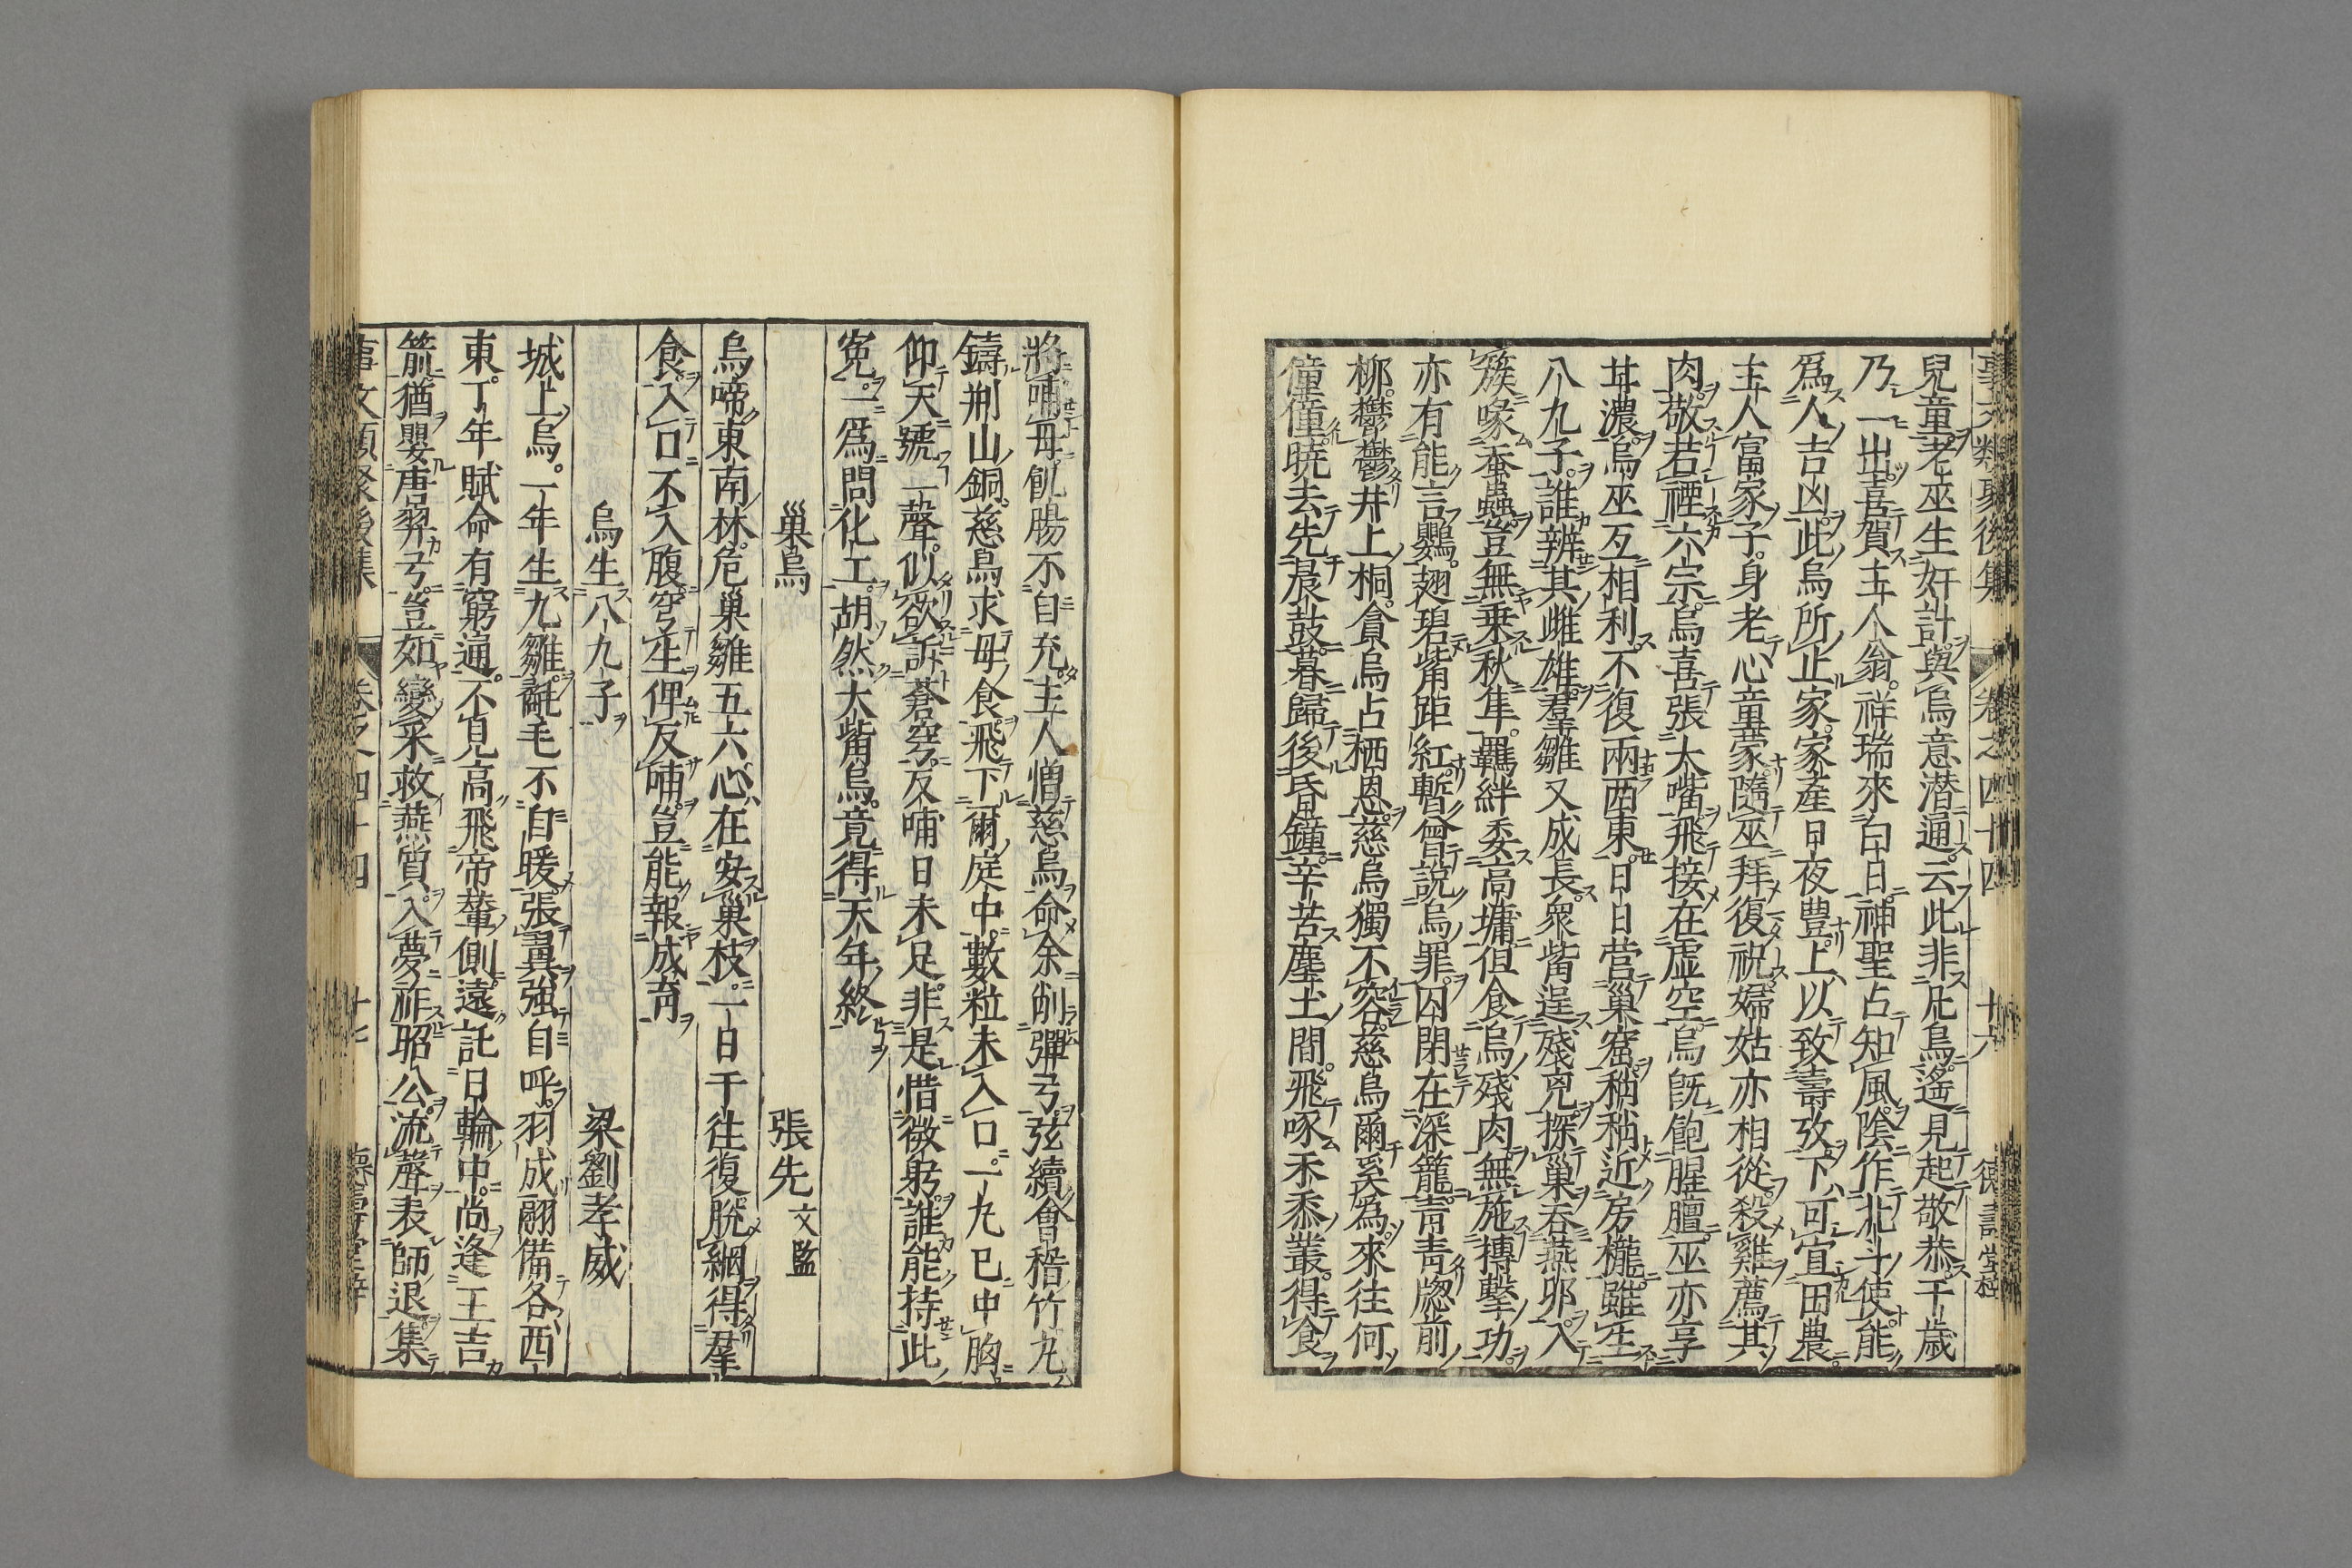 兒童老巫生奸計與烏意潜通云此非凡鳥遙見起敬恭千歲
乃一出喜賀主人翁祥瑞來白日神聖占知風陰作北斗使能
爲人吉凶此烏所止家家產日夜豐上以致壽攷下可宜田農
主人富家子身老心童蒙隨巫拜復祝婦姑亦相從殺雞薦其
肉敬若禋六宗烏喜張大嘴飛接在虛空烏既飽腥膻巫亦享
甘濃烏巫互相利不復兩西東日日营巢窟稍稍近房櫳雖生
八九子誰辨其雌雄羣雛又成長衆觜逞殘兇探巢吞燕卵入
簇喙蚕蟲豈無乗秋隼羈絆委高墉但食烏殘肉無施搏擊功
亦有能言鸚翅碧觜距紅暫曾說烏罪囚閉在深籠青青牕前
柳鬱鬱井上桐貪烏占栖恩慈烏獨不容慈烏爾奚爲來往何
憧憧暁去先晨鼓暮歸後昏鐘辛苦塵土間飛啄禾黍叢得食
將哺母飢腸不自充主人憎慈烏命余削彈弓弦續會稽竹丸
鑄荆山銅慈烏求母食飛下爾庭中數粒未入口一丸已中胸
仰天號一聲似欲訴蒼穹反哺日未足非是惜微躬誰能持此
寃一爲問化工胡然大觜烏竟得天年終
巢烏　張先文監
烏啼東南林危巢雛五六心在安巢枝一日干往復脫網得羣
食入口不入腹窮生俾反哺豈能報成育
烏生八九子　梁劉孝威
城上烏一年生九雛毛不自暖張翼強自呼羽成翮備各西
東丁年賦命有窮通不見高飛帝輦側遠託日輪中尚逢王吉
箭猶嬰唐羿弓豈如變采救燕質入夢祚昭公流聲表師退集